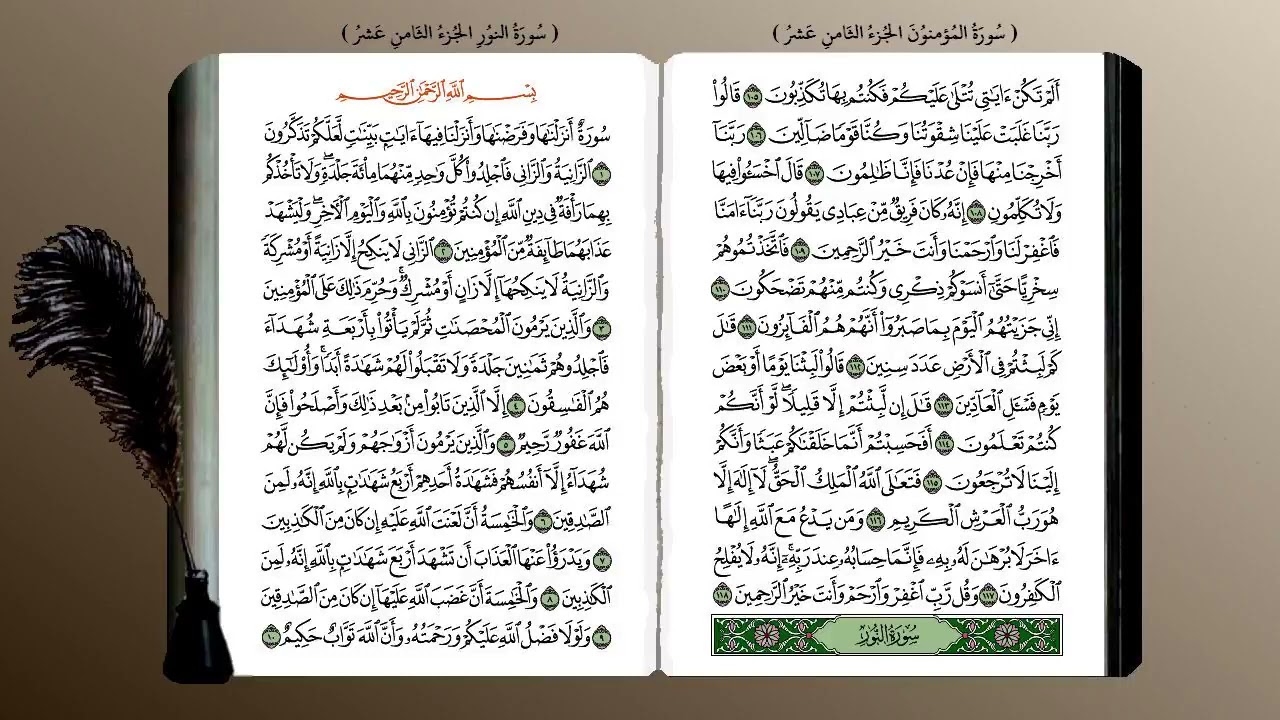 ( سُورَةُ المُؤمنوْنَ الجُزءُ الثَّامنِ عَشرُ )
أَلَمْ تَكُنْ ءَايَٰتِى تُتْلَىٰ عَلَيْكُمْ فَكُنتُم بِهَا تُكَذِّبُونَ ١٠٥ قَالُوا۟
رَبَّنَا غَلَبَتْ عَلَيْنَا شِقْوَتُنَا وَكُنَّا قَوْمًا ضَآلِّينَ ١٠٦ رَبَّنَآ
أَخْرِجْنَا مِنْهَا فَإِنْ عُدْنَا فَإِنَّا ظَٰلِمُونَ ١٠٧ قَالَ ٱخْسَـُٔوا۟ فِيهَا
وَلَا تُكَلِّمُونِ ١٠٨ إِنَّهُۥ كَانَ فَرِيقٌ مِّنْ عِبَادِى يَقُولُونَ رَبَّنَآ ءَامَنَّا
فَٱغْفِرْ لَنَا وَٱرْحَمْنَا وَأَنتَ خَيْرُ ٱلرَّٰحِمِينَ ١٠٩ فَٱتَّخَذْتُمُوهُمْ
سِخْرِيًّا حَتَّىٰٓ أَنسَوْكُمْ ذِكْرِى وَكُنتُم مِّنْهُمْ تَضْحَكُونَ ١١٠
إِنِّى جَزَيْتُهُمُ ٱلْيَوْمَ بِمَا صَبَرُوٓا۟ أَنَّهُمْ هُمُ ٱلْفَآئِزُونَ ١١١ قَٰلَ
كَمْ لَبِثْتُمْ فِى ٱلْأَرْضِ عَدَدَ سِنِينَ ١١٢ قَالُوا۟ لَبِثْنَا يَوْمًا أَوْ بَعْضَ
يَوْمٍ فَسْـَٔلِ ٱلْعَآدِّينَ ١١٣ قَٰلَ إِن لَّبِثْتُمْ إِلَّا قَلِيلًا ۖ لَّوْ أَنَّكُمْ
كُنتُمْ تَعْلَمُونَ ١١٤ أَفَحَسِبْتُمْ أَنَّمَا خَلَقْنَٰكُمْ عَبَثًا وَأَنَّكُمْ
إِلَيْنَا لَا تُرْجَعُونَ ١١٥ فَتَعَٰلَى ٱللَّهُ ٱلْمَلِكُ ٱلْحَقُّ ۖ لَآ إِلَٰهَ إِلَّا
هُوَ رَبُّ ٱلْعَرْشِ ٱلْكَرِيمِ ١١٦ وَمَن يَدْعُ مَعَ ٱللَّهِ إِلَٰهًا
ءَاخَرَ لَا بُرْهَٰنَ لَهُۥ بِهِۦ فَإِنَّمَا حِسَابُهُۥ عِندَ رَبِّهِۦٓ ۚ إِنَّهُۥ لَا يُفْلِحُ
ٱلْكَٰفِرُونَ ١١٧ وَقُل رَّبِّ ٱغْفِرْ وَٱرْحَمْ وَأَنتَ خَيْرُ ٱلرَّٰحِمِينَ ١١٨
سُورَةُ النُّورِ
( سُورَةُ النوُرِ الجُزءُ الثَّامنِ عَشرُ )
بِسْمِ ٱللَّهِ ٱلرَّحْمَٰنِ ٱلرَّحِيمِ
سُورَةٌ أَنزَلْنَٰهَا وَفَرَضْنَٰهَا وَأَنزَلْنَا فِيهَآ ءَايَٰتٍۭ بَيِّنَٰتٍ لَّعَلَّكُمْ تَذَكَّرُونَ
١ ٱلزَّانِيَةُ وَٱلزَّانِى فَٱجْلِدُوا۟ كُلَّ وَٰحِدٍ مِّنْهُمَا مِا۟ئَةَ جَلْدَةٍ ۖ وَلَا تَأْخُذْكُم
بِهِمَا رَأْفَةٌ فِى دِينِ ٱللَّهِ إِن كُنتُمْ تُؤْمِنُونَ بِٱللَّهِ وَٱلْيَوْمِ ٱلْءَاخِرِ ۖ وَلْيَشْهَدْ
عَذَابَهُمَا طَآئِفَةٌ مِّنَ ٱلْمُؤْمِنِينَ ٢ ٱلزَّانِى لَا يَنكِحُ إِلَّا زَانِيَةً أَوْ مُشْرِكَةً
وَٱلزَّانِيَةُ لَا يَنكِحُهَآ إِلَّا زَانٍ أَوْ مُشْرِكٌ ۚ وَحُرِّمَ ذَٰلِكَ عَلَى ٱلْمُؤْمِنِينَ
٣ وَٱلَّذِينَ يَرْمُونَ ٱلْمُحْصَنَٰتِ ثُمَّ لَمْ يَأْتُوا۟ بِأَرْبَعَةِ شُهَدَآءَ
فَٱجْلِدُوهُمْ ثَمَٰنِينَ جَلْدَةً وَلَا تَقْبَلُوا۟ لَهُمْ شَهَٰدَةً أَبَدًا ۚ وَأُو۟لَٰٓئِكَ
هُمُ ٱلْفَٰسِقُونَ ٤ إِلَّا ٱلَّذِينَ تَابُوا۟ مِنۢ بَعْدِ ذَٰلِكَ وَأَصْلَحُوا۟ فَإِنَّ
ٱللَّهَ غَفُورٌ رَّحِيمٌ ٥ وَٱلَّذِينَ يَرْمُونَ أَزْوَٰجَهُمْ وَلَمْ يَكُن لَّهُمْ
شُهَدَآءُ إِلَّآ أَنفُسُهُمْ فَشَهَٰدَةُ أَحَدِهِمْ أَرْبَعُ شَهَٰدَٰتٍۭ بِٱللَّهِ ۙ إِنَّهُۥ لَمِنَ
ٱلصَّٰدِقِينَ ٦ وَٱلْخَٰمِسَةُ أَنَّ لَعْنَتَ ٱللَّهِ عَلَيْهِ إِن كَانَ مِنَ ٱلْكَٰذِبِينَ
٧ وَيَدْرَؤُا۟ عَنْهَا ٱلْعَذَابَ أَن تَشْهَدَ أَرْبَعَ شَهَٰدَٰتٍۭ بِٱللَّهِ ۙ إِنَّهُۥ لَمِنَ
ٱلْكَٰذِبِينَ ٨ وَٱلْخَٰمِسَةَ أَنَّ غَضَبَ ٱللَّهِ عَلَيْهَآ إِن كَانَ مِنَ ٱلصَّٰدِقِينَ
٩ وَلَوْلَا فَضْلُ ٱللَّهِ عَلَيْكُمْ وَرَحْمَتُهُۥ وَأَنَّ ٱللَّهَ تَوَّابٌ حَكِيمٌ ١٠